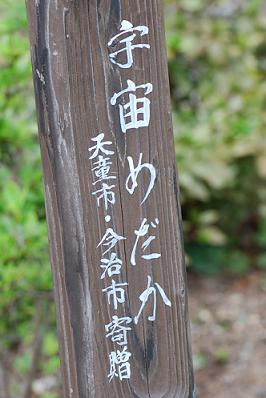 宇宙めだか
天童市・今治市寄贈